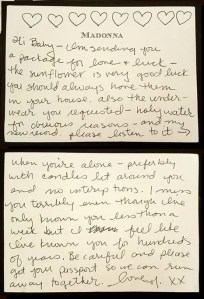 MADONNA
Hi Baby - I'm sending you
a package for love + luck -
the sunflower is very good luck
you should always have them
in your house. also the under-
wear you requested - holy water
for obvious reasons - and my
new record, please listen to it →
when you're alone - preferably
with candles lit around you
and no interruptions. I miss
you terribly even though I've
only known you less than a
week but I feel like
I've known you for hundreds
of years. Be careful and please
get your passport so we can run
away together. Love, XX